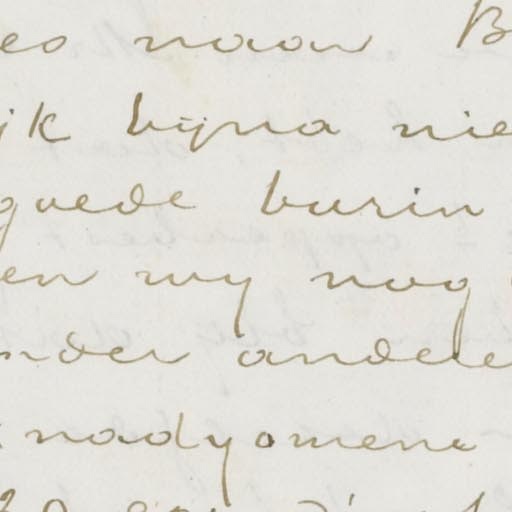 es naar B
jk bijna nie
goede burin
en wy nog
nder andere
nadyomene